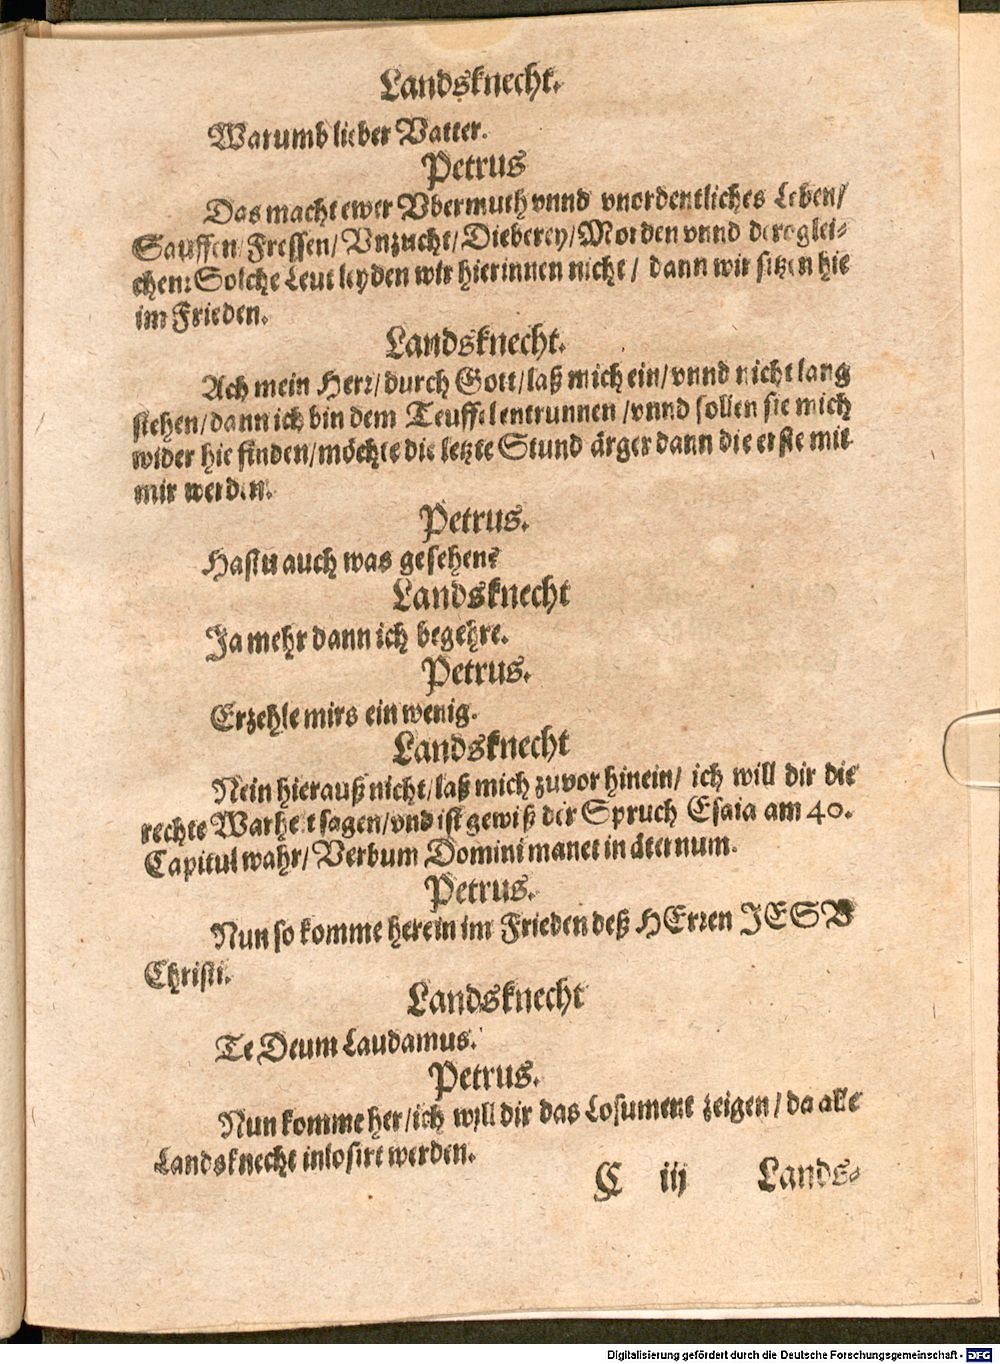 Landsknecht.
Warumb lieber Vatter.
Petrus
Das macht ewer Vbermuth vnnd vnordentliches Leben/
Sauffen/Fressen/Vnzucht/Dieberey/Morden vnnd deroglei-
chen: Solche Leut leyden wir hierinnen nicht/ dann wir sitzen hie
im Frieden.
Landsknecht.
Ach mein Herr/durch Gott/laß mich ein/vnnd nicht lang
stehen/dann ich bin dem Teuffel entrunnen/vnnd sollen sie mich
wider hie finden/möchte die letzte Stund ärger dann die erste mit
mir werden.
Petrus.
Hastu auch was gesehen?
Landsknecht
Ja mehr dann ich begehre.
Petrus.
Erzehle mirs ein wenig.
Landsknecht
Nein hierauß nicht/laß mich zuvor hinein/ ich will dir die
rechte Warheit sagen/vnd ist gewiß der Spruch Esaia am 40.
Capitul wahr/Verbum Domini manet in äternum.
Petrus.
Nun so komme herein im Frieden deß HErren JESV
Christi.
Landsknecht
Te Deum Laudamus.
Petrus.
Nun komme her/ich will dir das Losument zeigen/da alle
Landsknecht inlosirt werden.
C iij Lands-
Digitalisierung gefördert durch die Deutsche Forschungsgemeinschaft - DFG